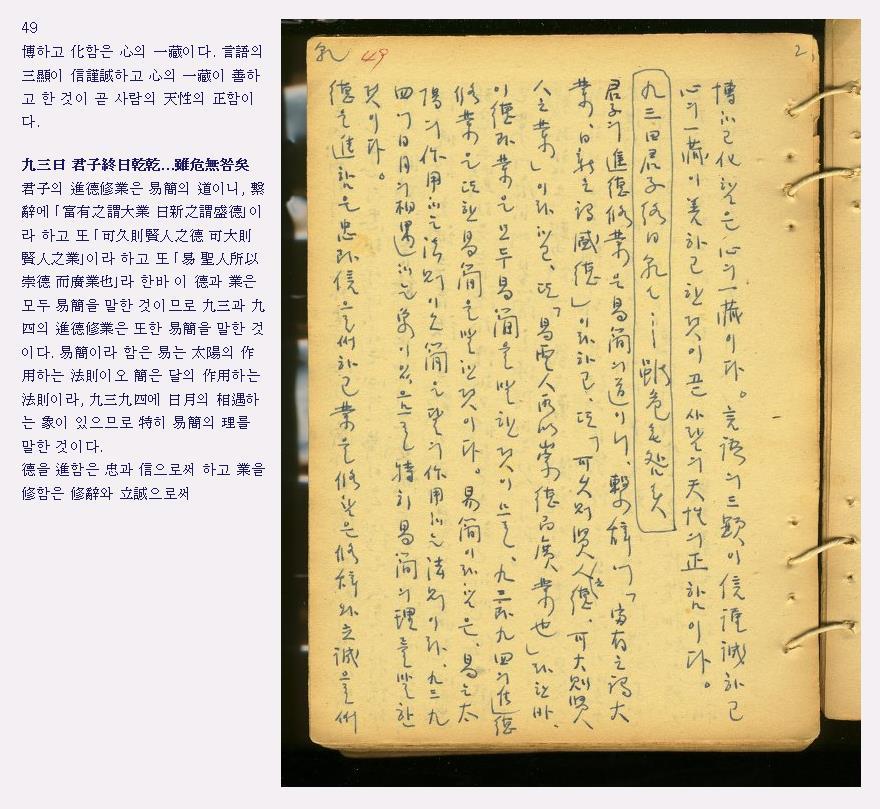 49
博하고 化함은 心의 一藏이다. 言語의
三顯이 信謹誠하고 心의 一藏이 善하
고 한 것이 곧 사람의 天性의 正함이
다.
九三曰 君子終日乾乾…雖危無咎矣
君子의 進德修業은 易簡의 道이니, 繫
辭에「富有之謂大業 日新之謂盛德」이
라 하고 또「可久則賢人之德 可大則
賢人之業」이라 하고 또「易 聖人所以
崇德 而廣業也」라 한바 이 德과 業은
모두 易簡을 말한 것이므로 九三과 九
四의 進德修業은 또한 易簡을 말한 것
이다. 易簡이라 함은 易는 太陽의 作
用하는 法則이오 簡은 달의 作用하는
法則이라, 九三九四에 日月의 相遇하
는 象이 있으므로 特히 易簡의 理를
말한 것이다.
德을 進함은 忠과 信으로써 하고 業을
修함은 修辭와 立誠으로써
乾 49
2
博하고 化함은 心의 一藏이다。言語의 三顯이 信謹誠하고
心의 一藏이 善하고 한 것이 곧 사람의 天性의 正함이다。
九三曰君子終日乾〻……雖危無咎矣
君子의 進德修業은 易簡의 道이니、繫辭에「富有之謂大
業、日新之謂盛德」이라 하고、또「可久則賢人之德、可大則賢人
之業」이라 하고、또「易聖人所以崇德而廣業也」라 한바、
이 德과 業은 모두 易簡을 말한 것이므로、九三과 九四의 進德
修業은 또한 易簡을 말한 것이다。易簡이라 함은、易는 太
陽의 作用하는 法則이오 簡은 달의 作用하는 法則이라、九三九
四에 日月의 相遇하는 象이 있으므로 特히 易簡의 理를 말한
것이다。
德을 進함은 忠과 信을써 하고 業을 修함은 修辭와 立誠을써